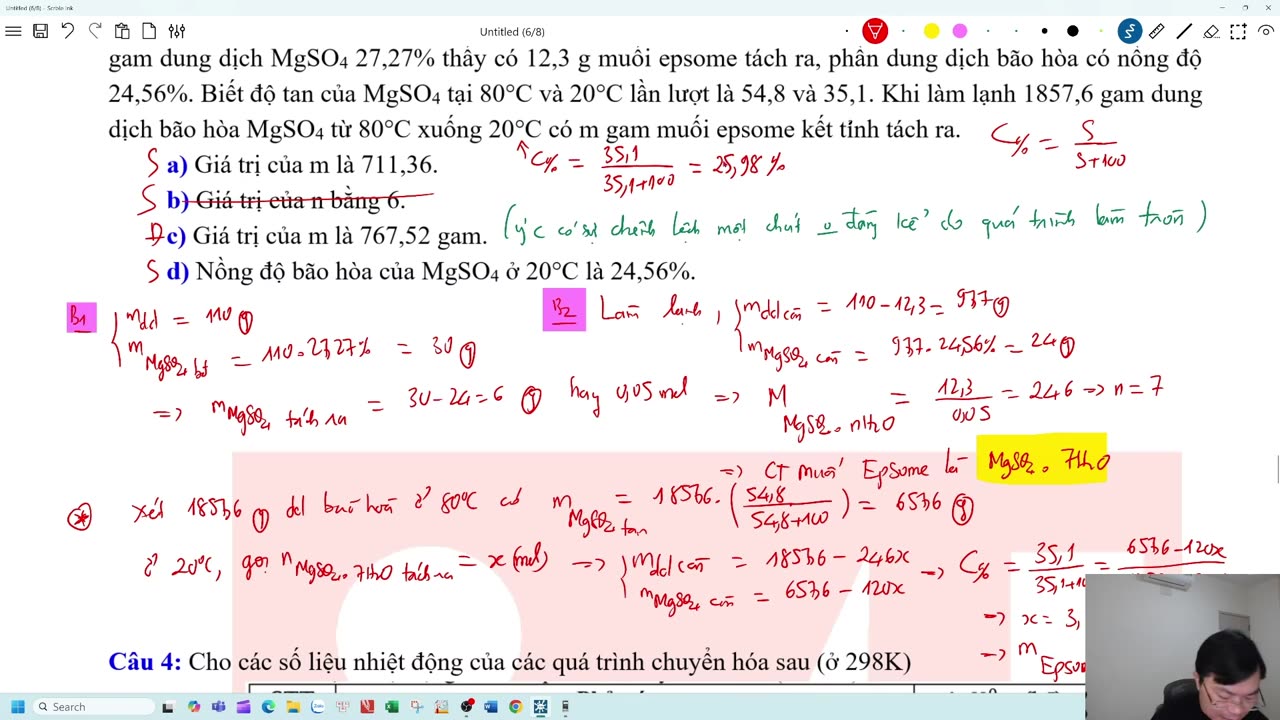 Untitled (6/8) - Scrble Ink
Untitled (6/8)
gam dung dịch MgSO4 27,27% thấy có 12,3 g muối epsome tách ra, phần dung dịch bão hòa có nồng độ
24,56%. Biết độ tan của MgSO4 tại 80°C và 20°C lần lượt là 54,8 và 35,1. Khi làm lạnh 1857,6 gam dung
dịch bão hòa MgSO4 từ 80°C xuống 20°C có m gam muối epsome kết tinh tách ra.
C% = S/(S+100)
S a) Giá trị của m là 711,36.
C% = 35,1/(35,1+100) = 25,98 %
S b) Giá trị của n bằng 6.
Đ c) Giá trị của m là 767,52 gam. (ý c có sự chênh lệch một chút o đáng kể do quá trình làm tròn)
S d) Nồng độ bão hòa của MgSO4 ở 20°C là 24,56%.
B1 mdd = 110 g
mMgSO4 bđ = 110.27,27% = 30 g
B2 Làm lạnh, mdd còn = 110 - 12,3 = 97,7 g
mMgSO4 còn = 97,7.24,56% = 24 g
=> mMgSO4 tách ra = 30 - 24 = 6 g hay 0,05 mol => M MgSO4.nH2O = 12,3/0,05 = 246 => n = 7
=> CT muối Epsome là MgSO4.7H2O
* Xét 1857,6 g dd bão hoà ở 80°C có mMgSO4 tan = 1857,6.(54,8/(54,8+100)) = 657,6 g
ở 20°C, gọi nMgSO4.7H2O tách ra = x (mol) => mdd còn = 1857,6 - 246x
mMgSO4 còn = 657,6 - 120x
→ C% = 35,1/35,1+10 = 657,6 - 120x
→ x = 3,
→ m Epsom
Câu 4: Cho các số liệu nhiệt động của các quá trình chuyển hóa sau (ở 298K)
Search